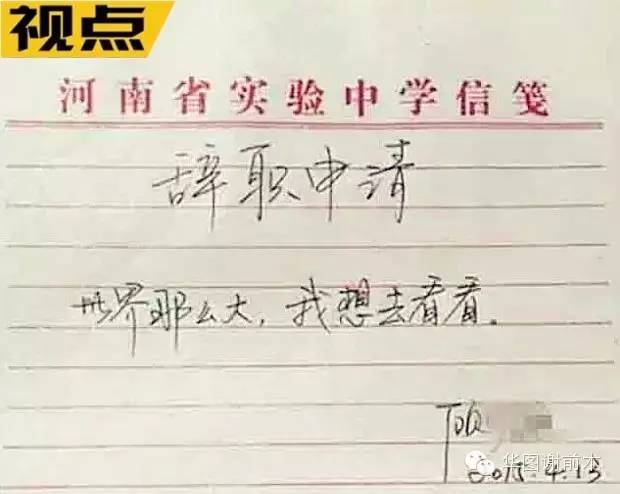 视点
河南省实验中学信笺
辞职申请
世界那么大，我想去看看。
顾
2015.4.13
华图谢前木